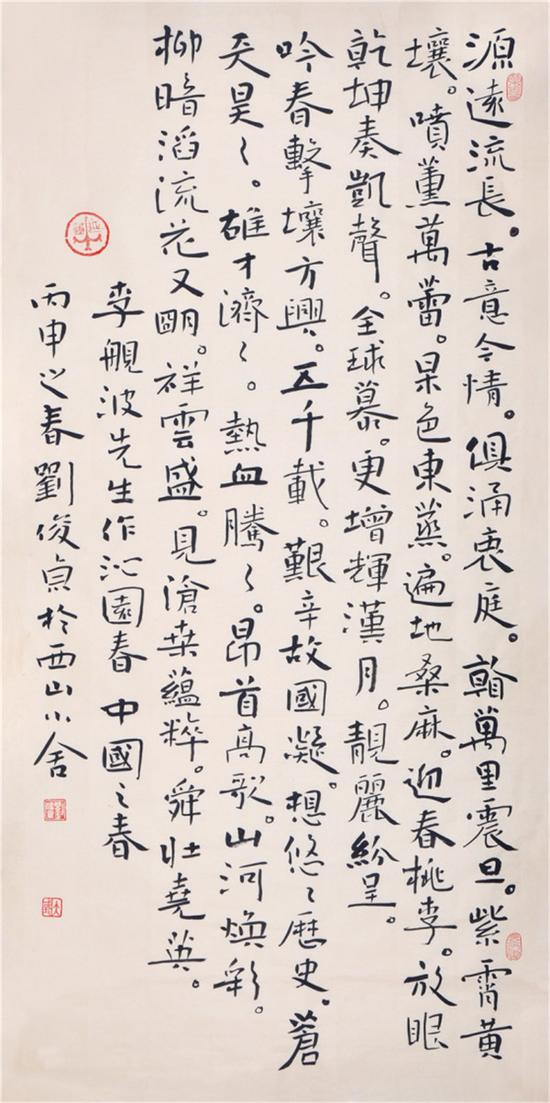 源遠流長。古意今情。俱涌衷庭。翰萬里震旦。紫霄黄
壤。噴薰萬蕾。杲色東蒸。遍地桑麻。迎春桃李。放眼
乾坤奏凱聲。全球慕。更增輝漢月。靚麗紛呈。
吟春擊壤方興。五千載。艱辛故國凝。想悠〻歷史。蒼
天昊〻。雄才濟〻。熱血騰〻。昂首高歌。山河煥彩。
柳暗滔流花又朙。祥雲盛。見滄桑蘊粹。舜壯堯英。
李舰波先生作沁園春 中國之春
丙申之春劉俊貞於西山小舍